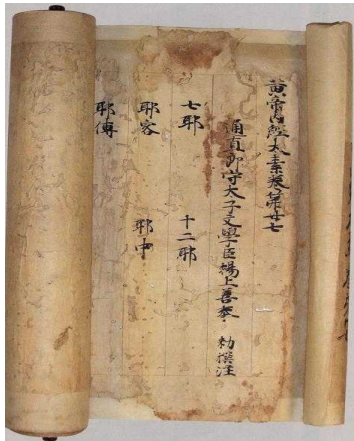 黄帝内經太素卷第廿七
通直郎守太子文學臣楊上善奉 勅撰注
七耶 十二耶
耶客 耶中
耶傳